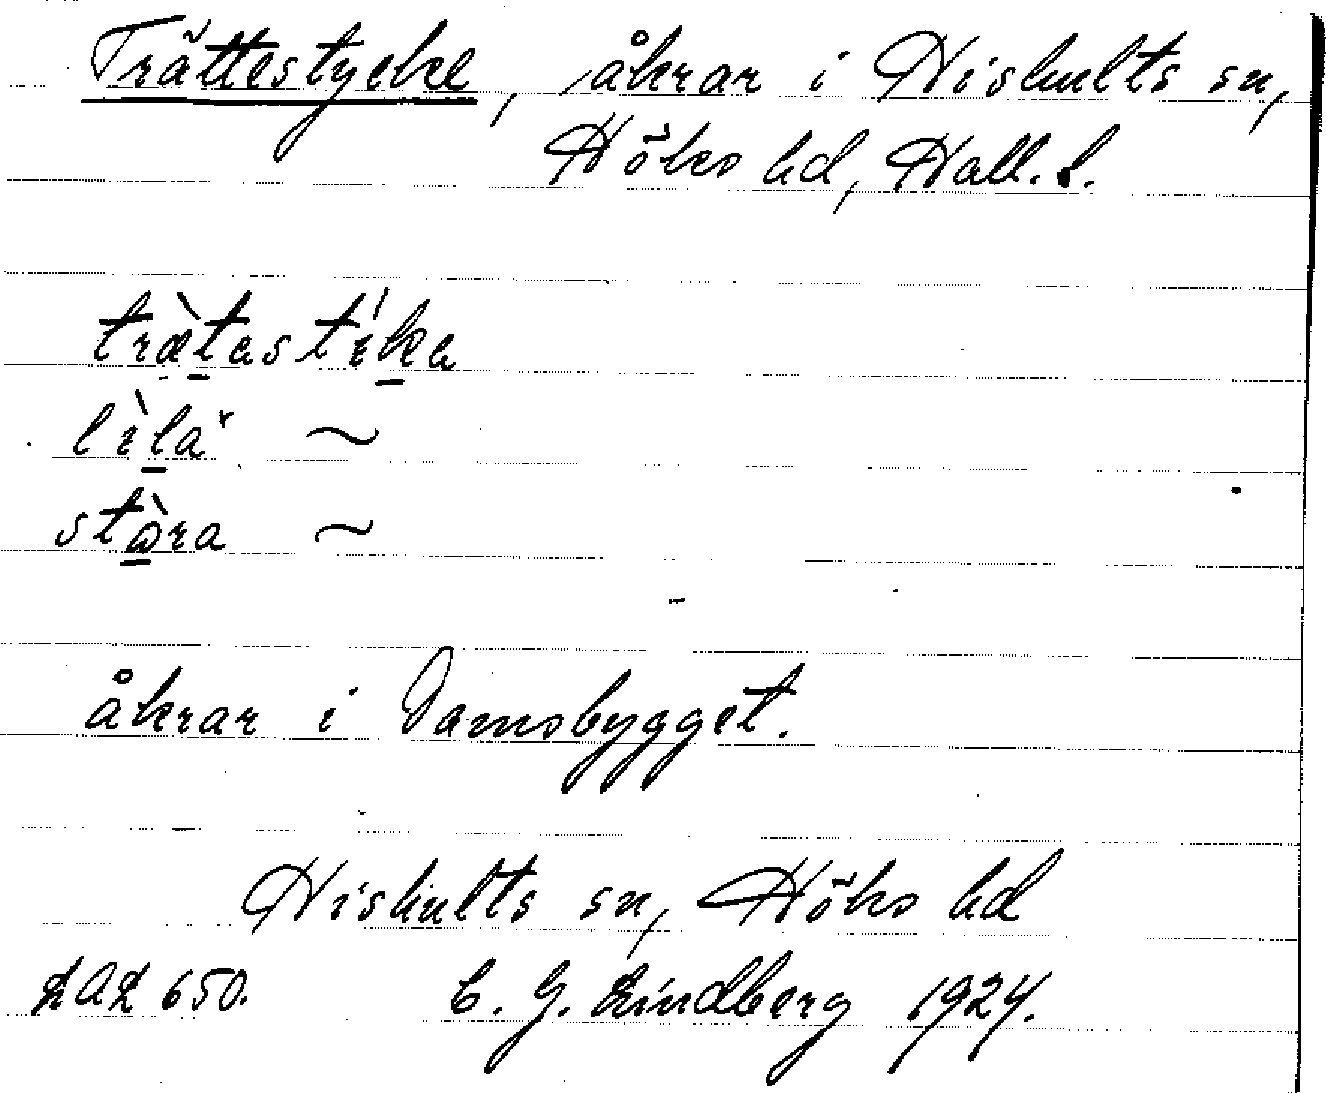 Trättestycke, åkrar i Hishults sn,
Höks hd, Hall. l.
træ̀tastíka
lìla ~
stòra ~
åkrar i Damsbygget.
Hishults sn, Höks hd
LAL 650. C. G. Lindberg 1924.